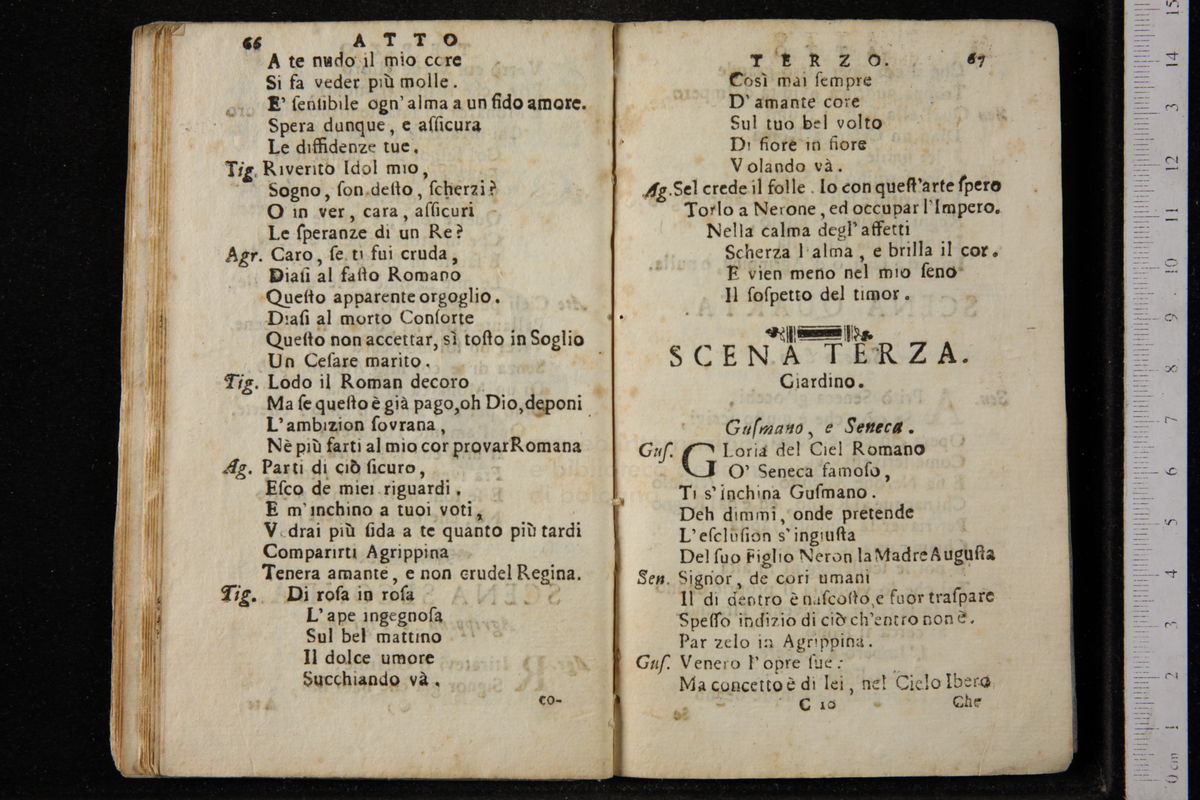 66 ATTO
A te nudo il mio core
Si fa veder più molle.
E' ſenſibile ogn'alma a un fido amore.
Spera dunque, e aſſicura
Le diffidenze tue.
Tig. Riverito Idol mio,
Sogno, ſon deſto, ſcherzi?
O in ver, cara, aſſicuri
Le ſperanze di un Re?
Agr. Caro, ſe ti fui cruda,
Diaſi al faſto Romano
Queſto apparente orgoglio.
Diaſi al morto Conſorte
Queſto non accettar, sì toſto in Soglio
Un Ceſare marito.
Tig. Lodo il Roman decoro
Ma ſe queſto è già pago, oh Dio, deponi
L'ambizion ſovrana,
Nè più farti al mio cor provar Romana
Ag. Parti di ciò ſicuro,
Eſco de miei riguardi.
E m'inchino a tuoi voti,
Vedrai più fida a te quanto più tardi
Comparirti Agrippina
Tenera amante, e non crudel Regina.
Tig. Di roſa in roſa
L'ape ingegnoſa
Sul bel mattino
Il dolce umore
Succhiando và.
co-
TERZO. 67
Così mai ſempre
D'amante core
Sul tuo bel volto
Di fiore in fiore
Volando và.
Ag. Sel crede il folle. Io con queſt'arte ſpero
Torlo a Nerone, ed occupar l'Impero.
Nella calma degl'affetti
Scherza l'alma, e brilla il cor.
E vien meno nel mio ſeno
Il ſoſpetto del timor.
SCENA TERZA.
Giardino.
Guſmano, e Seneca.
Guſ. GLoria del Ciel Romano
O' Seneca famoſo,
Ti s'inchina Guſmano.
Deh dimmi, onde pretende
L'eſcluſion s'ingiuſta
Del ſuo Figlio Neron la Madre Auguſta
Sen. Signor, de cori umani
Il di dentro è naſcoſto, e fuor traſpare
Speſſo indizio di ciò ch'entro non è.
Par zelo in Agrippina.
Guſ. Venero l'opre ſue:
Ma concetto è di lei, nel Cielo Ibero
C 10 Che
0 cm 1 2 3 4 5 6 7 8 9 10 11 12 13 14 15